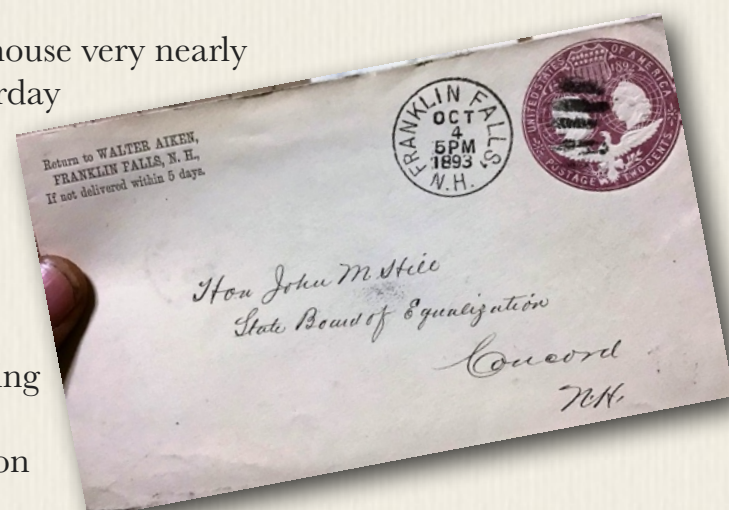 house very nearly
rday
Return to WALTER AIKEN,
FRANKLIN FALLS, N. H.,
If not delivered within 5 days.
FRANKLIN FALLS,
OCT
4
5PM
1893
N.H.
UNITED STATES OF AMERICA
1892
POSTAGE TWO CENTS
Hon John M Hill
State Board of Equalization
Concord
N.H.
ng
on